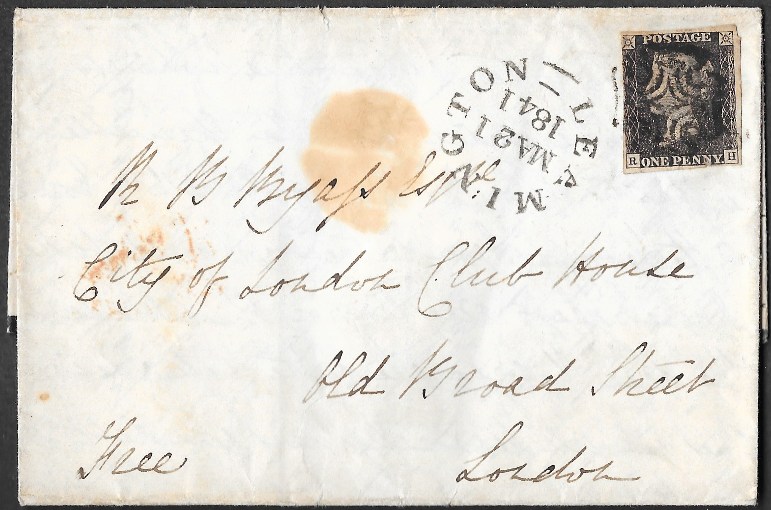 POSTAGE
R H
ONE PENNY
LEAMINGTON
MA21
1841
R B Byass Esqre
City of London Club House
Old Broad Street
London
Free